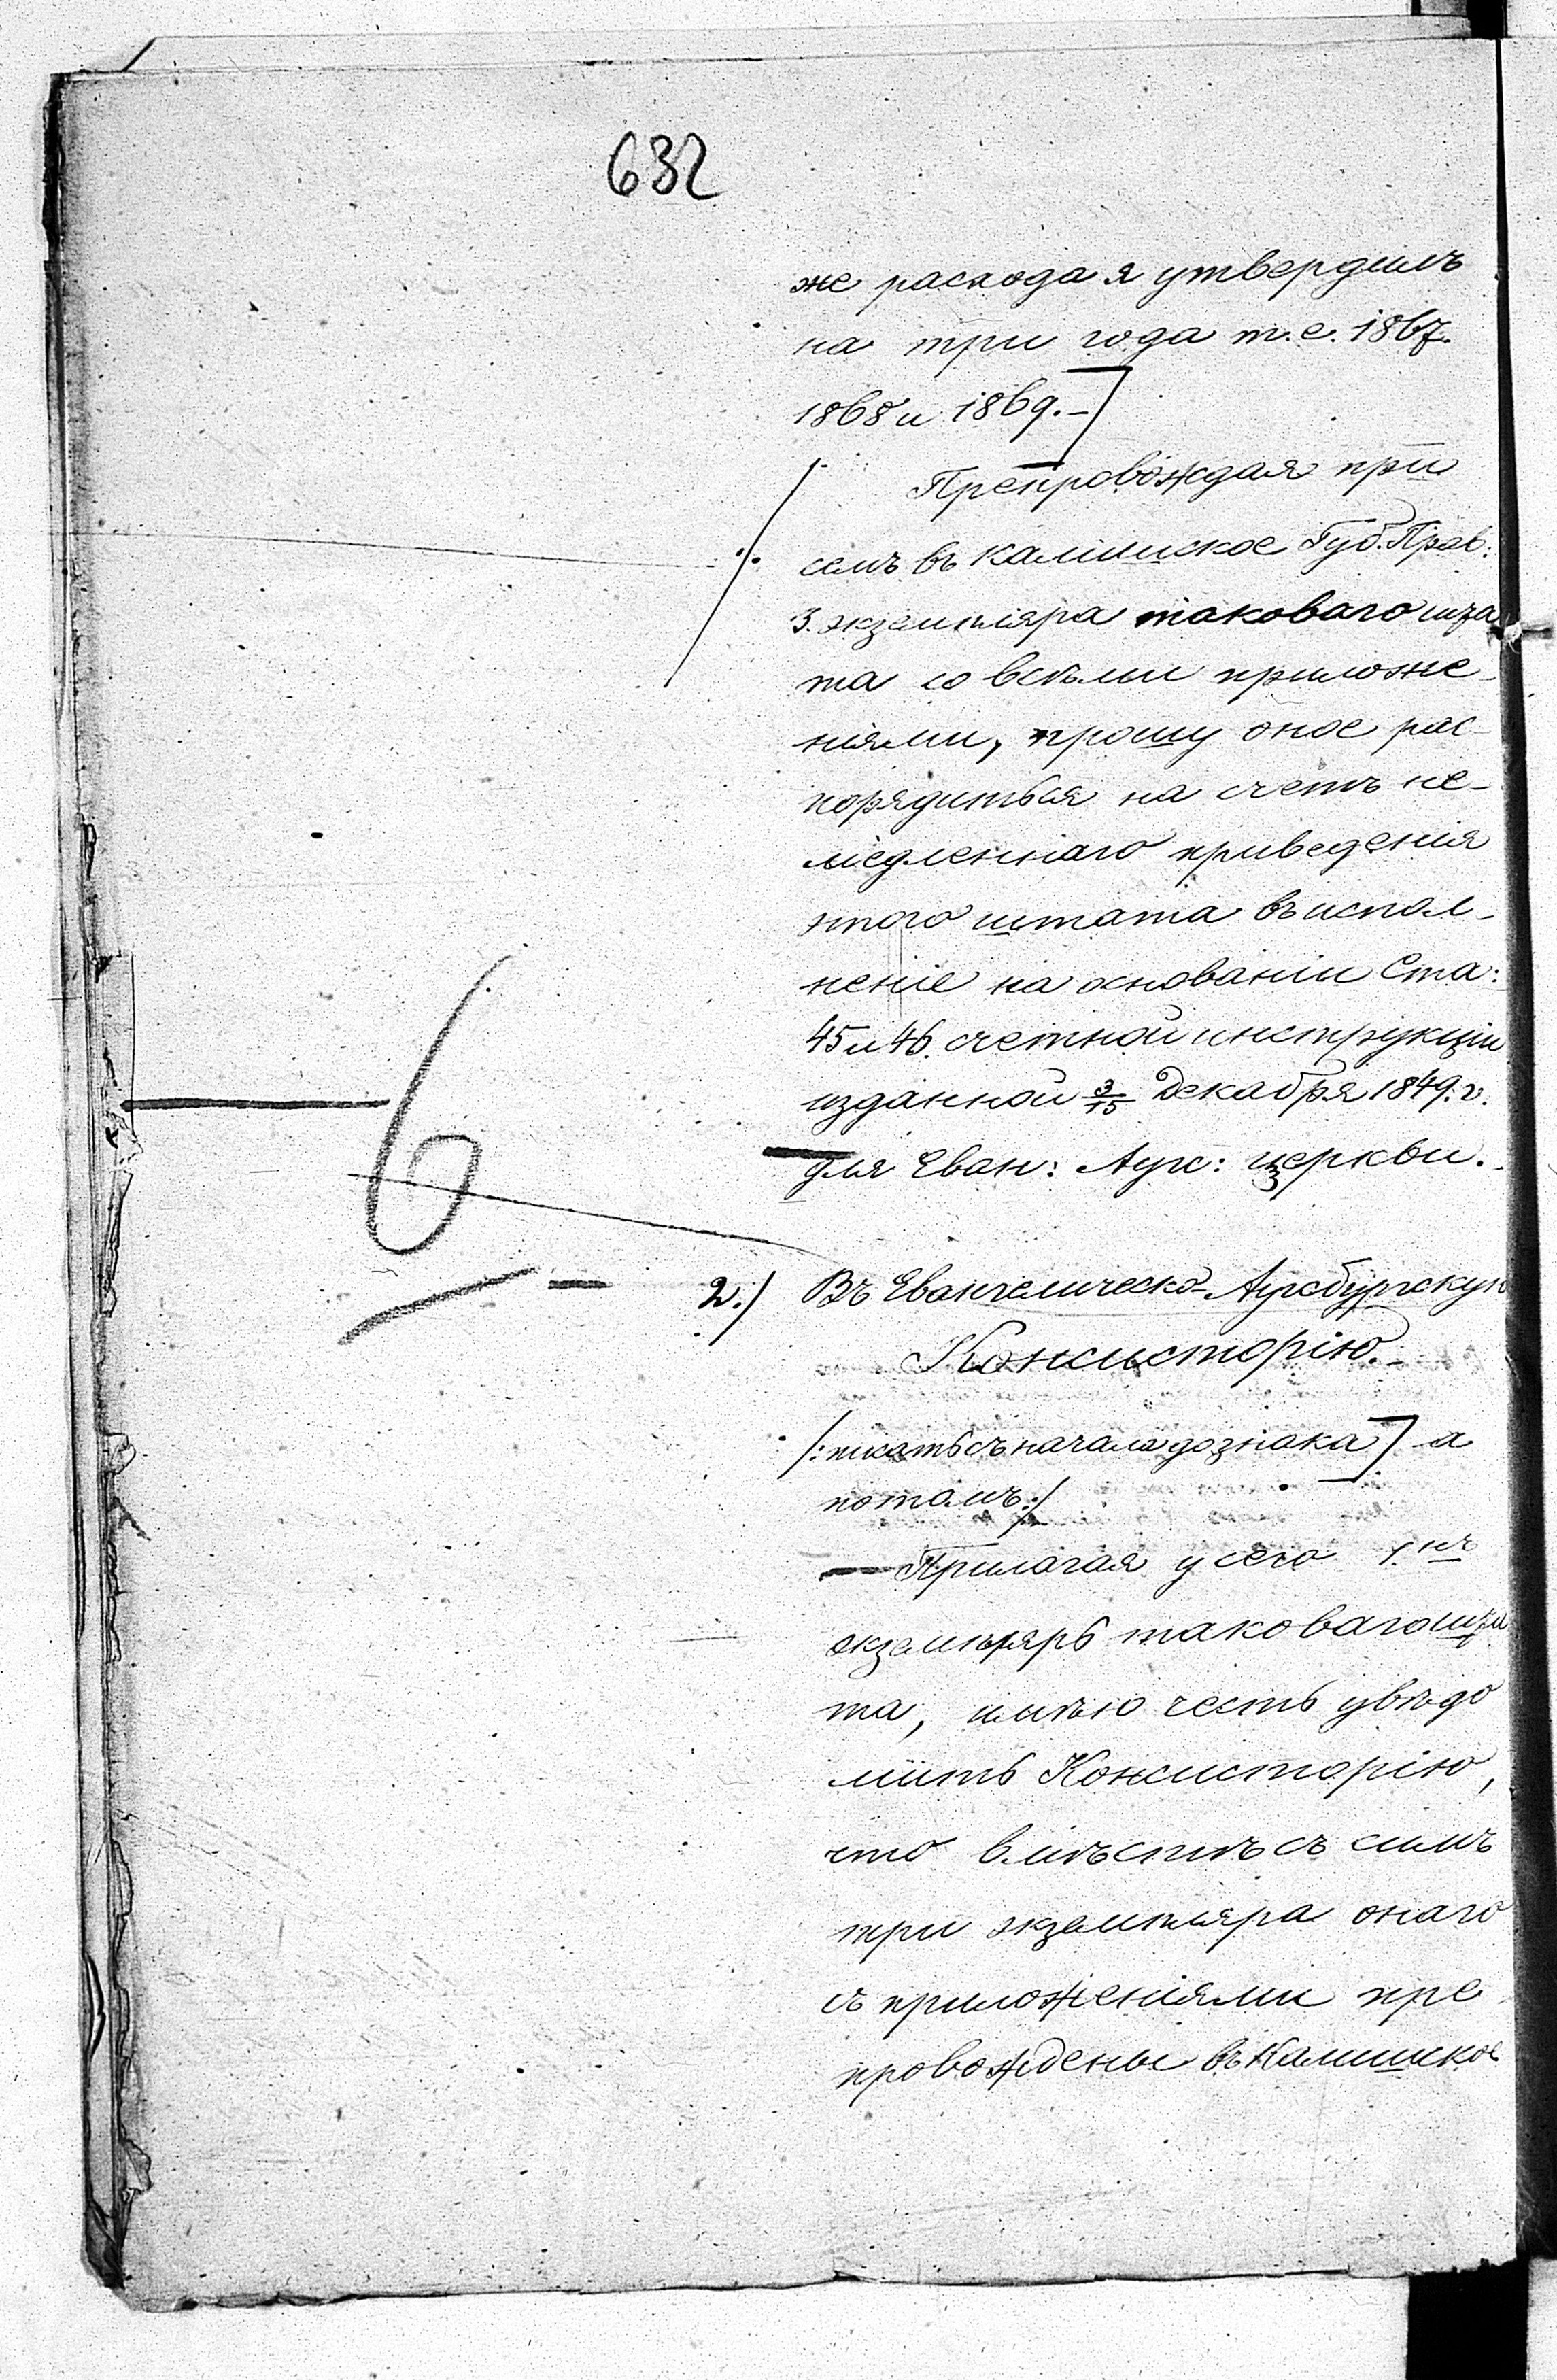 632
же расхода я утвердилъ
на три года т.е. 1867.
1868 и 1869.-]
Препровождая при
семъ въ Калишское Губ. Прав:
3. экземпляра таковаго шта
та со всѣми приложе-
ніями, прошу оное рас-
порядиться на счетъ не-
медленнаго приведенія
этого штата въ испол-
неніе на основаніи Ста:
45 и 46. счетной инструкціи
изданной 3/15 Декабря 1849. г.
для Еван: Аугс: церкви.
6
2./ Въ Евангелическо-Аугсбургскую
Консисторію.
/: писать съ начала до знака ] а
потомъ:/
Прилагая у сего 1.нъ
экземпляръ таковаго шта
та, имѣю честь увѣдо
мить Консисторію,
что вмѣстѣ съ симъ
три экземпляра онаго
съ приложеніями пре
провождены въ Калишское